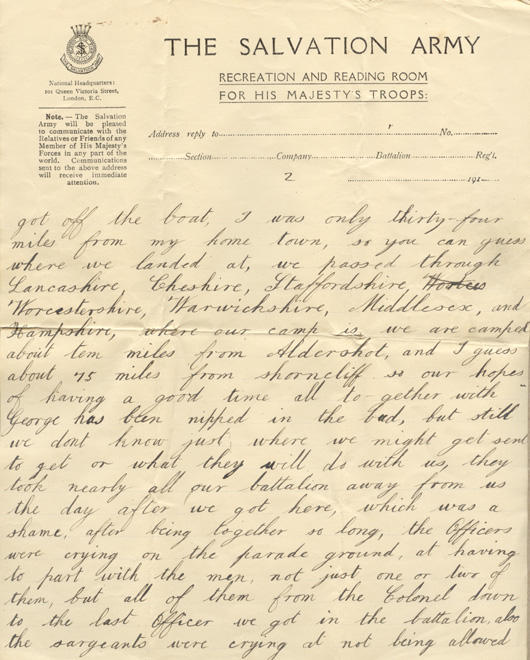 THE SALVATION ARMY
RECREATION AND READING ROOM
FOR HIS MAJESTY'S TROOPS:
National Headquarters:
101 Queen Victoria Street,
London, E.C.
Note.—The Salvation
Army will be pleased
to communicate with the
Relatives or Friends of any
Member of His Majesty's
Forces in any part of the
world. Communications
sent to the above address
will receive immediate
attention.
Address reply to No.
Section Company Battalion Reg't.
2 191
got off the boat, I was only thirty-four
miles from my home town, so you can guess
where we landed at, we passed through
Lancashire, Cheshire, Staffordshire,
Worcestershire, Warwickshire, Middlesex, and
Hampshire, where our camp is, we are camped
about tem miles from Aldershot, and I guess
about 75 miles from shorncliff so our hopes
of having a good time all to-gether with
George has been nipped in the bud, but still
we dont know just where we might get sent
to get or what they will do with us, they
took nearly all our battalion away from us
the day after we got here, which was a
shame, after being together so long, the Officers
were crying on the parade ground, at having
to part with the men, not just one or two of
them, but all of them from the Colonel down
to the last Officer we got in the battalion, also
the sargeants were crying at not being allowed